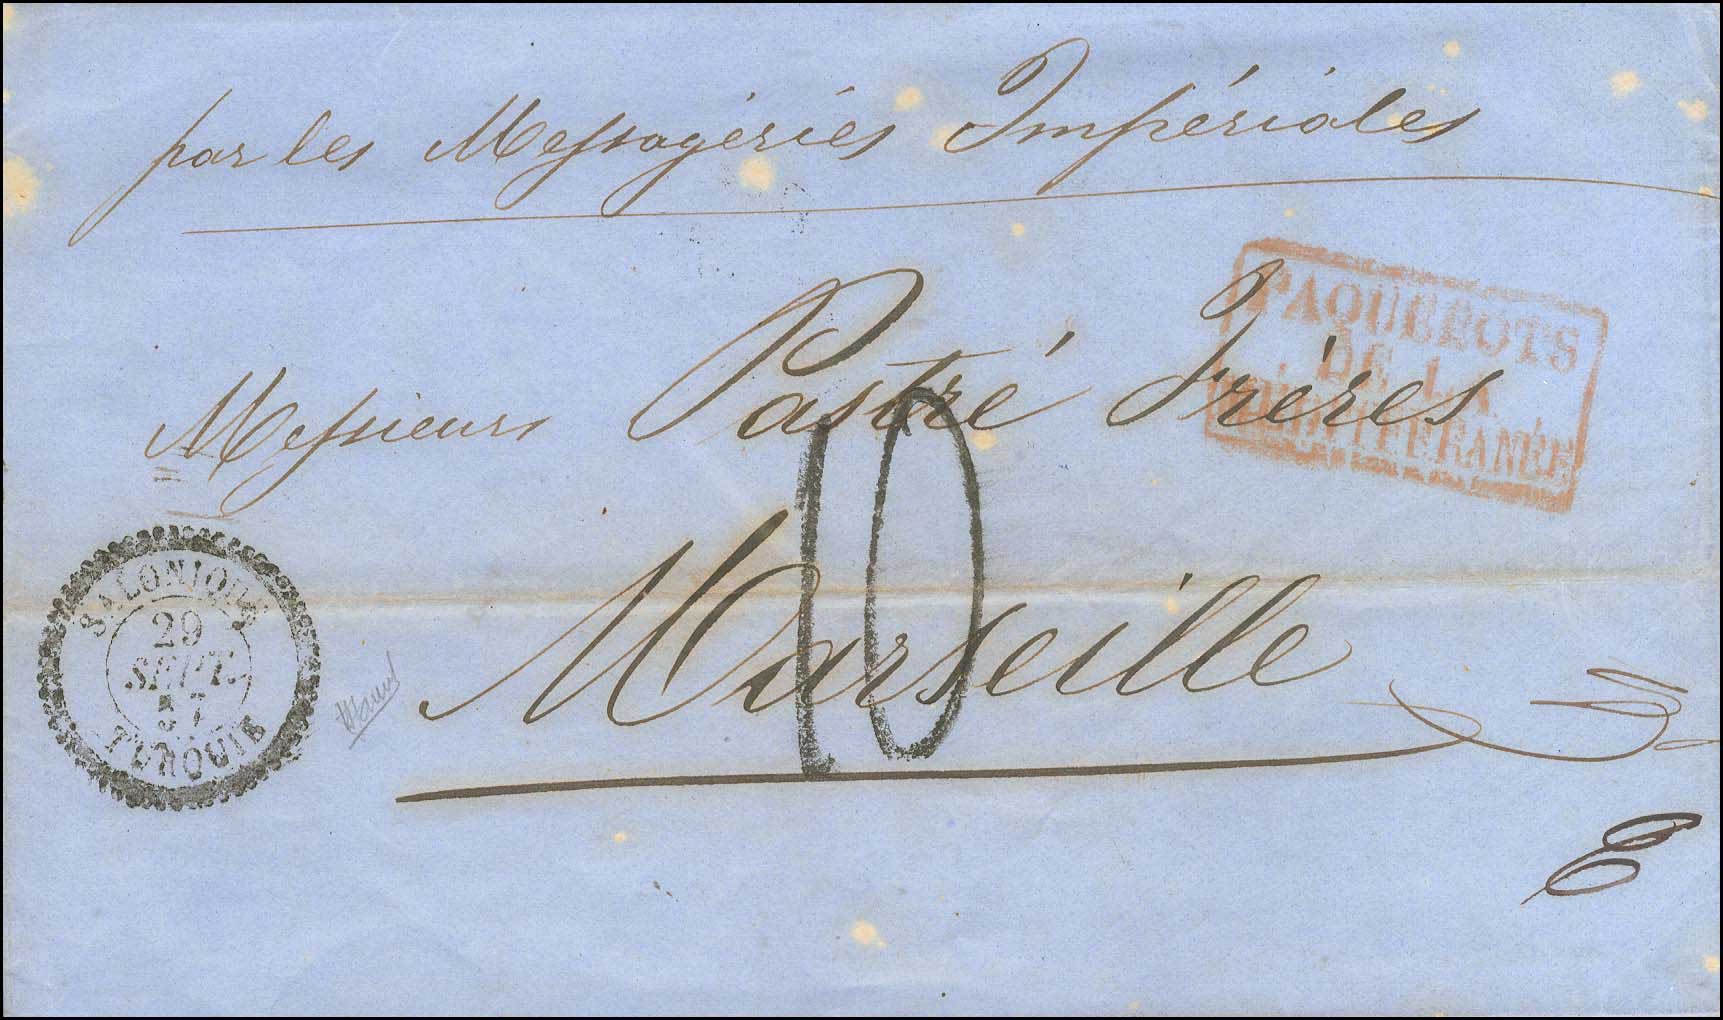 par les Messagéries Impériales
Messieurs Pastré Frères
PAQUEBOTS
DE LA
MÉDITERRANÉE
10
Marseille
SALONIQUE
29
SEPT.
57
TURQUIE
E